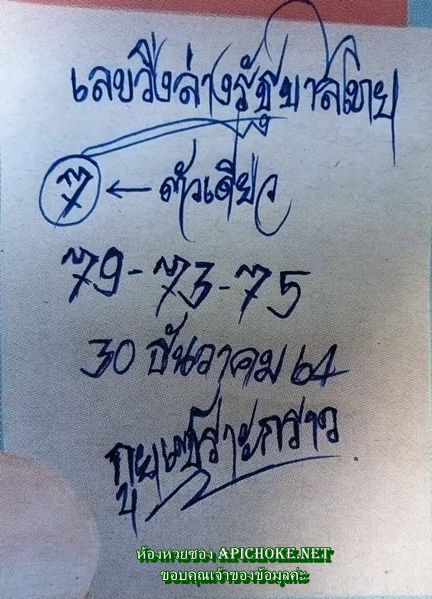 เลขวิ่งล่างรัฐบาลไทย
7 ← ตัวเดียว
79-73-75
30 ธันวาคม 64
ห้องหวยซอง APICHOKE.NET
ขอบคุณเจ้าของข้อมูลค่ะ